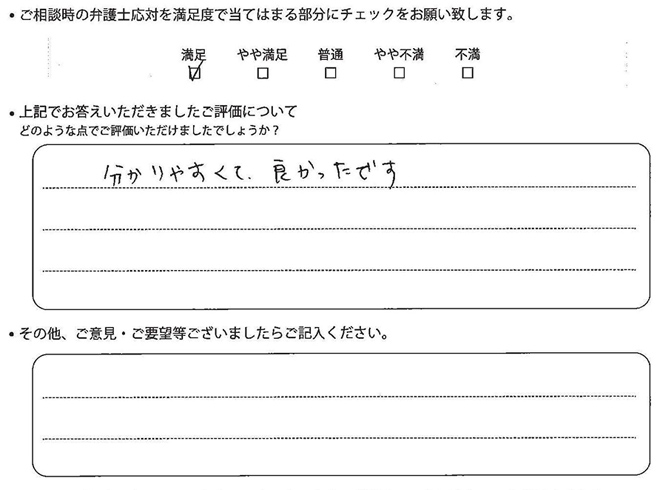 • ご相談時の弁護士応対を満足度で当てはまる部分にチェックをお願い致します。
満足 やや満足 普通 やや不満 不満
☑ □ □ □ □
• 上記でお答えいただきましたご評価について
どのような点でご評価いただけましたでしょうか？
分かりやすくて、良かったです
• その他、ご意見・ご要望等ございましたらご記入ください。